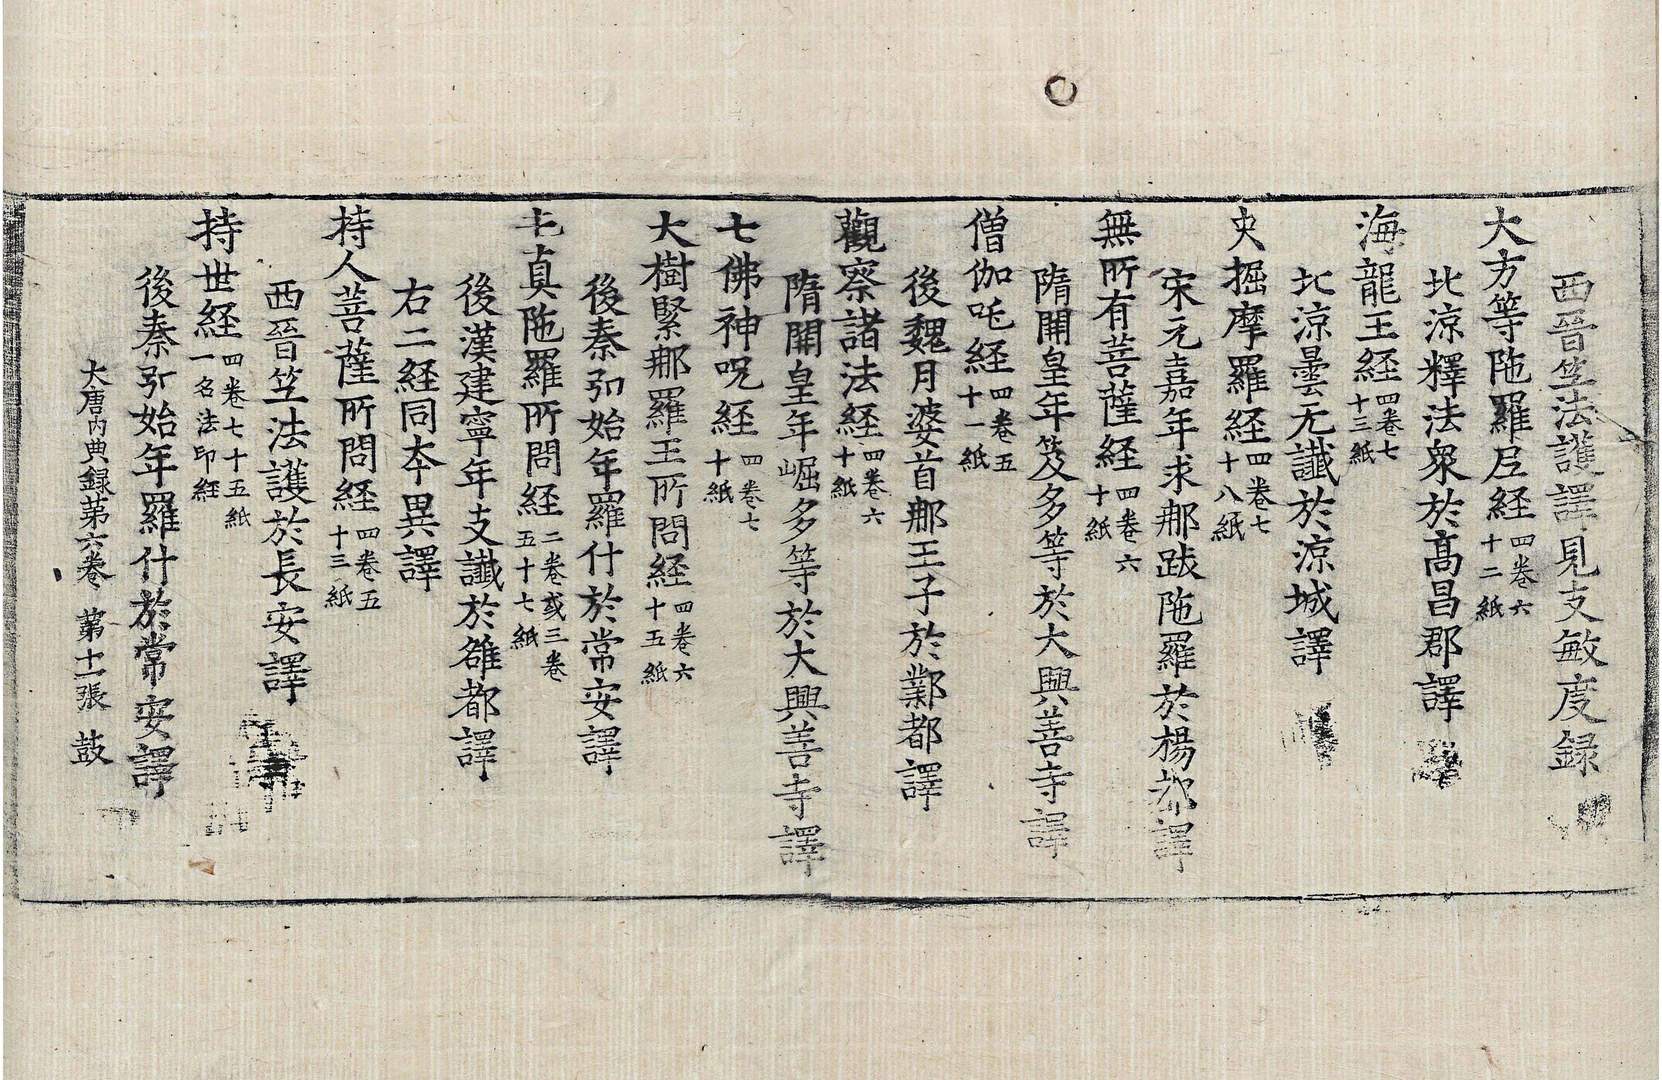 西晉竺法護譯見支敏度録
大方等陁羅尼経四卷六十二紙
北涼釋法衆於髙昌郡譯
海龍王経四卷七十三紙
北涼曇无讖於涼城譯
央掘摩羅経四卷七十八紙
宋元嘉年求那跋陁羅於楊都譯
無所有菩薩経四卷六十紙
隋開皇年笈多等於大興善寺譯
僧伽吒経四卷五十一紙
後魏月婆首那王子於鄴都譯
觀察諸法経四卷六十紙
隋開皇年崛多等於大興善寺譯
七佛神呪経四卷七十紙
大樹緊那羅王所問経四卷六十五紙
後秦弘始年羅什於常安譯
屯真陁羅所問経二卷或三卷五十七紙
後漢建寧年支讖於雒都譯
右二経同夲異譯
持人菩薩所問経四卷五十三紙
西晉竺法護於長安譯
持世経四卷七十五紙一名法印経
後秦弘始年羅什於常安譯
大唐内典録苐六卷 苐十一張 鼓